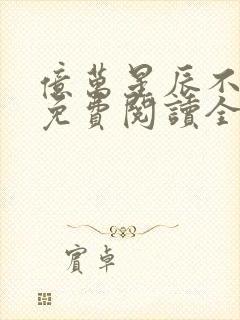 億萬星辰不
免費閱讀全
賓卓